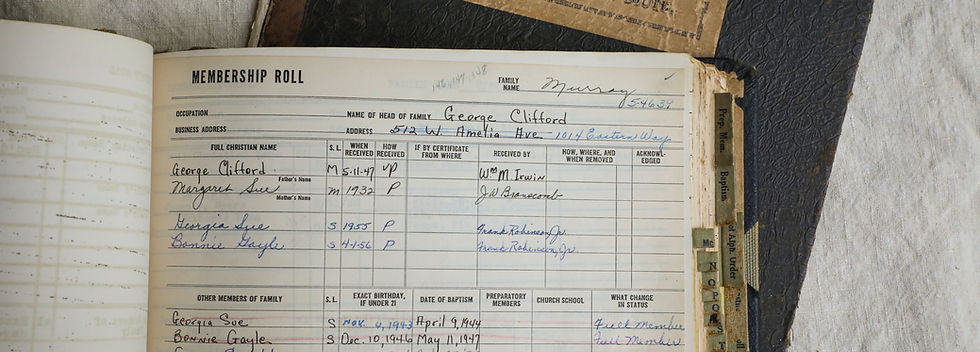 MEMBERSHIP ROLL 146, 147, 148 FAMILY NAME Murray
5-4634
OCCUPATION NAME OF HEAD OF FAMILY George Clifford
BUSINESS ADDRESS ADDRESS 512 W. Amelia Ave. - 1014 Eastern Way
FULL CHRISTIAN NAME S. L. WHEN RECEIVED HOW RECEIVED IF BY CERTIFICATE FROM WHERE RECEIVED BY HOW, WHERE, AND WHEN REMOVED ACKNOWLEDGED
George Clifford M 5-11-47 VP Wm M. Irwin
Father's Name
Margaret Sue M 1932 P J.W. Branscomb
Mother's Name
Georgia Sue S 1955 P Frank Robinson, Jr.
Bonnie Gayle S 4-1-56 P Frank Robinson, Jr.
OTHER MEMBERS OF FAMILY S. L. EXACT BIRTHDAY, IF UNDER 21 DATE OF BAPTISM PREPARATORY MEMBERS CHURCH SCHOOL WHAT CHANGE IN STATUS
Georgia Sue S Nov. 4, 1943 April 9, 1944 Full Member
Bonnie Gayle S Dec. 10, 1946 May 11, 1947 Full Member
Prep. Mem.
Baptism
of Alph. Order
Mc
N
O
P